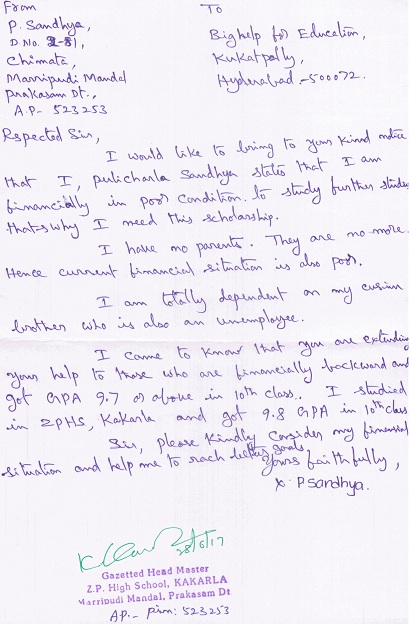 From
P. Sandhya,
D.No. 2-81,
Chimata,
Marripudi Mandal
Prakasam Dt.,
A.P- 523253
To
Bighelp for Education,
Kukatpally,
Hyderabad.-500072.
Rspected Sir,
I would like to bring to your kind notice
that I, pulicharla Sandhya states that I am
financially in poor condition. to study further studies
that-s why I need this scholarship.
I have no parents. They are no more.
Hence current financial situation is also poor.
I am totally dependent on my cusim
brother who is also an unemployee.
I came to know that you are extending
your help to those who are financially backward and
got GPA 9.7 or above in 10th class. I studied
in ZPHS, Kakarla and got 9.8 GPA in 10th class
Sir, please kindly consider my financial
situation and help me to rach goals.
Yours faithfully,
x P Sandhya.
28/6/17
Gazetted Head Master
Z.P. High School, KAKARLA
Marripudi Mandal, Prakasam Dt
AP.- pin: 523253